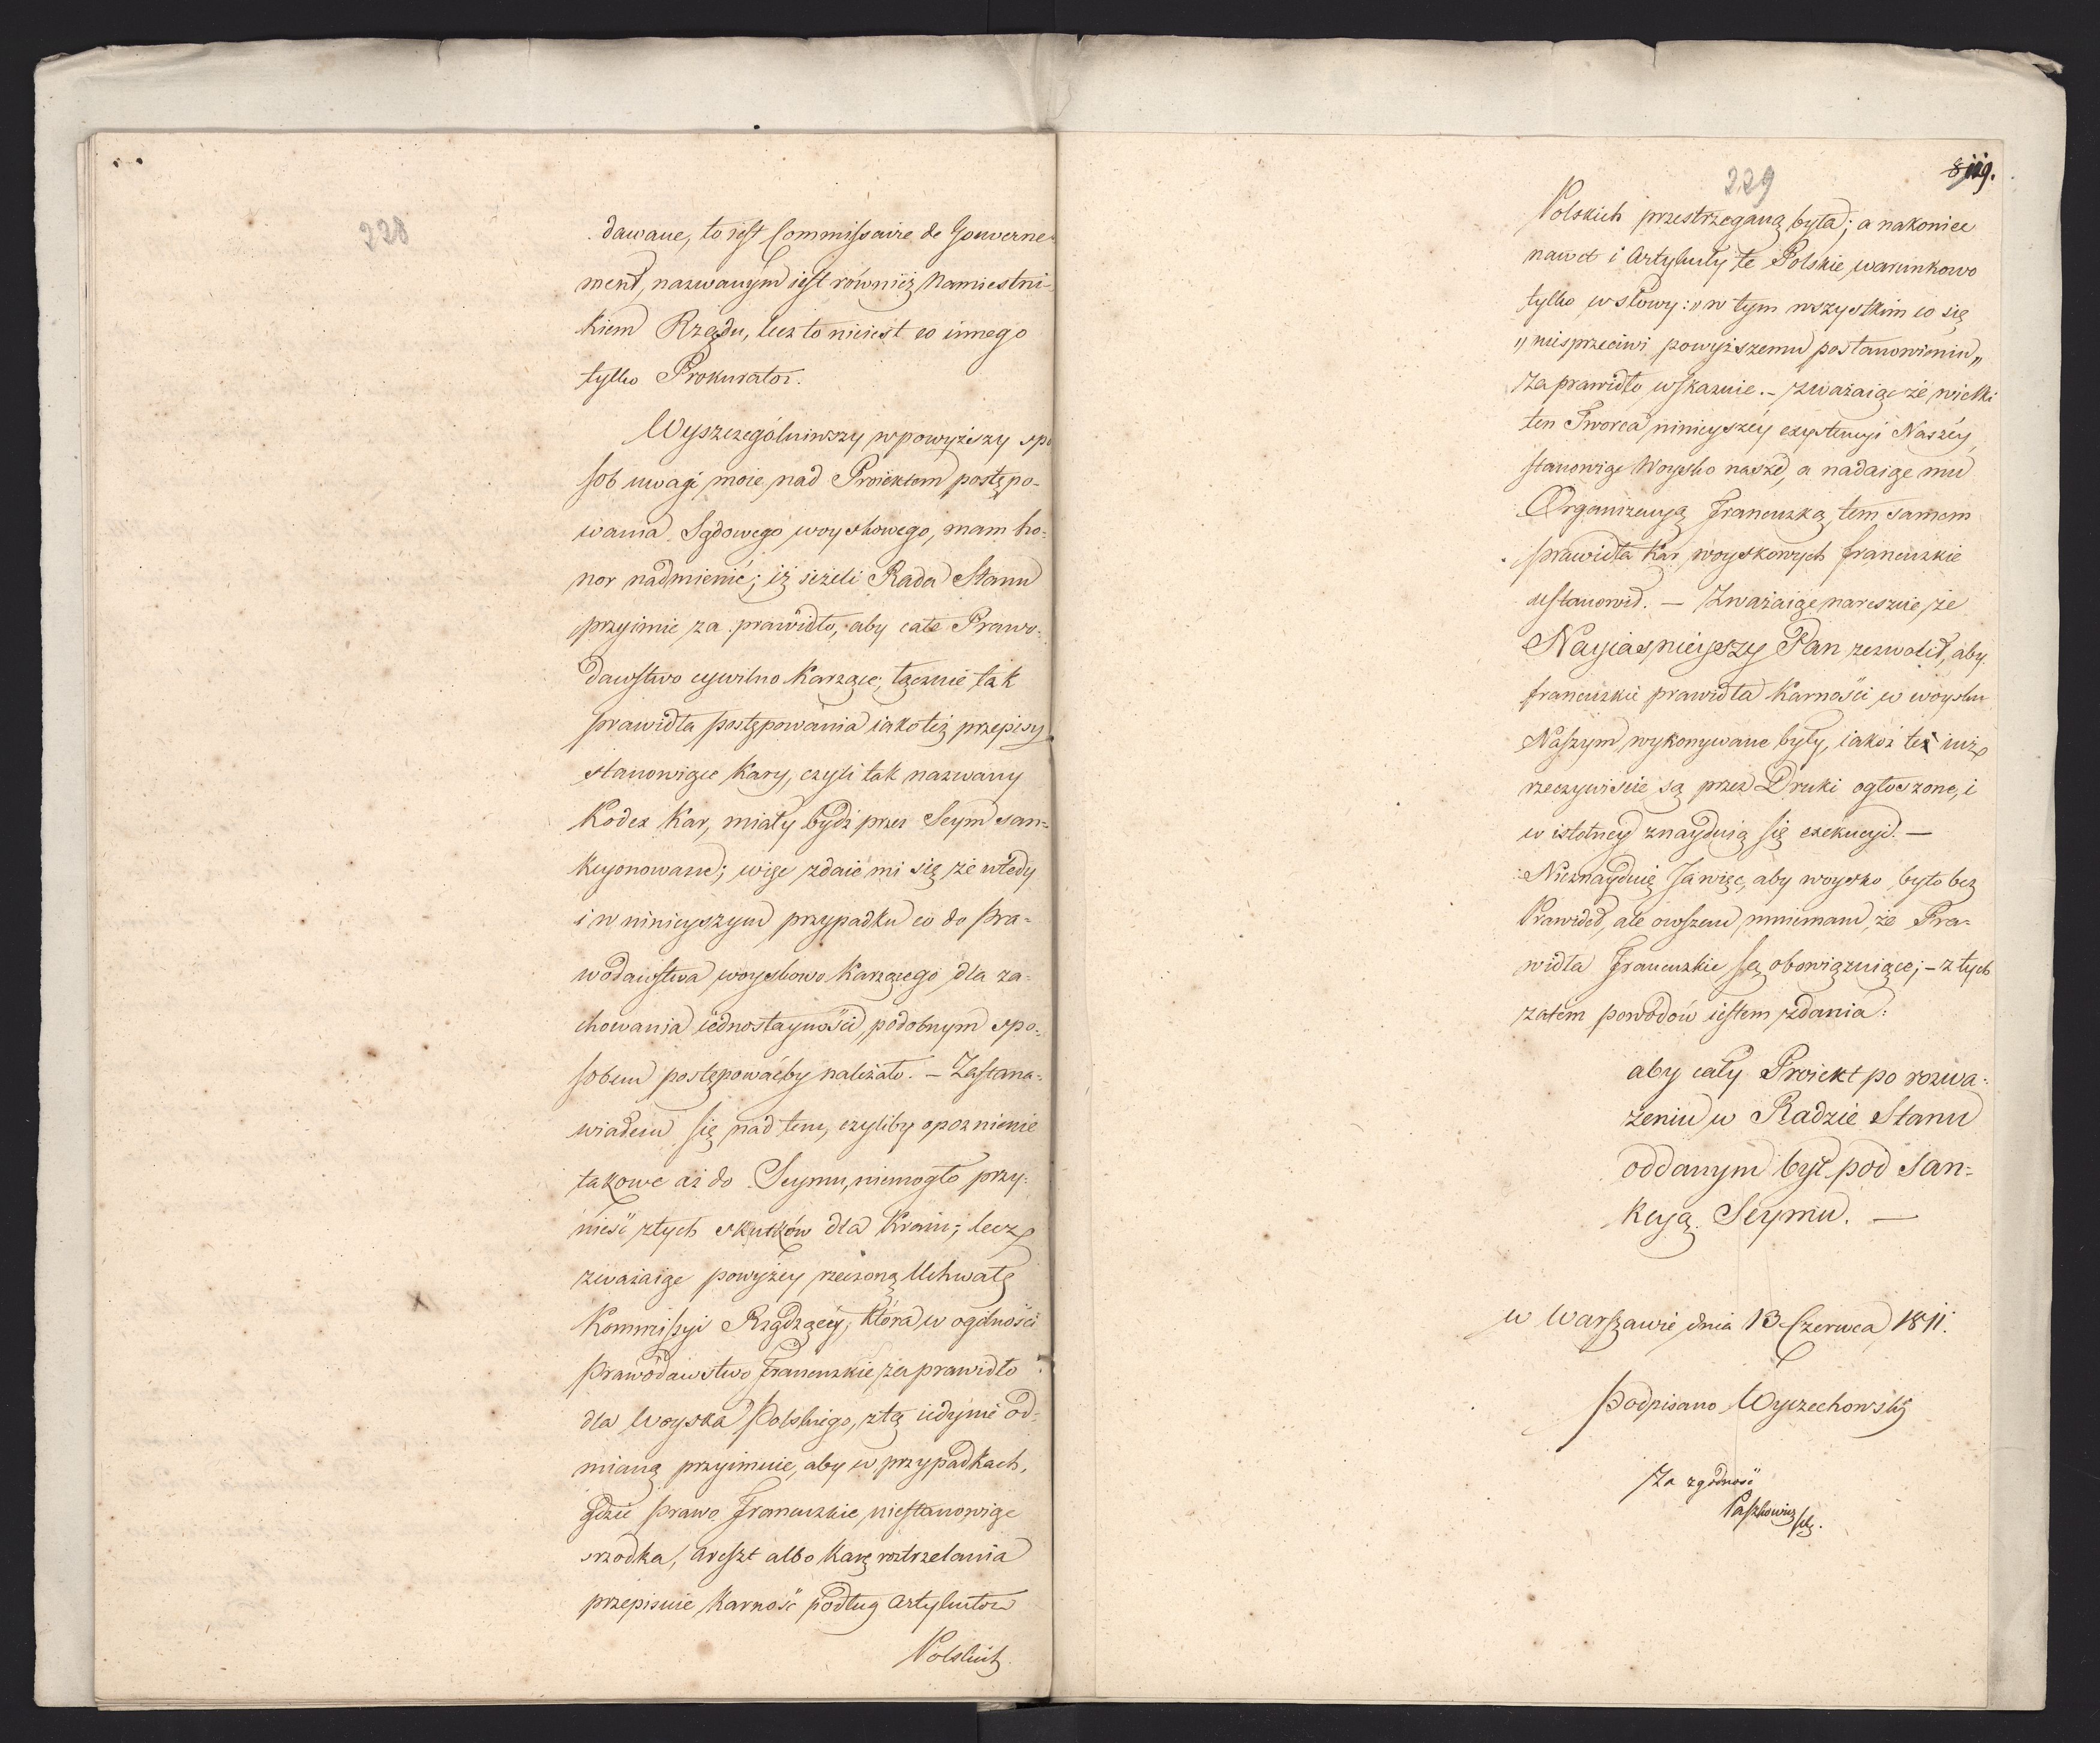 228
dawane, to iest Commissaire de Gouverne-
ment, nazwanym iest również Namiestni-
kiem Rządu, lecz to nieiest co innego
tylko Prokurator.
Wyszczególniwszy w powyższy spo
sób uwagi moie nad Proiektem postępo-
wania Sądowego woyskowego, mam ho-
nor nadmienić; iż ieżeli Rada Stanu
przyimie za prawidło, aby całe Prawo-
dawstwo cywilno karzące, łącznie tak
prawidła postępowania iako też przepisy
stanowiące kary, czyli tak nazwany
Kodex Kar, miały bydź przez Seym san-
kcyonowane; więc zdaie mi się że wtedy
i w ninieyszym przypadku co do pra-
wodawstwa woyskowo karzącego dla za-
chowania iednostayności, podobnym spo-
sobem postępowaćby należało. – Zastana-
wiałem się nad tem, czyliby opoznienie
takowe aż do Seymu, niemogło przy-
nieść złych skutków dla Kraiu; lecz
zważaiąc powyżey rzeczoną Uchwałę
Kommissyi Rządzącéy, która w ogólności
prawodawstwo Francuzkie za prawidło
dla Woyska Polskiego, z tą iedynie od-
mianą przyimuie, aby w przypadkach,
gdzie prawo Francuzkie niestanowiąc
srzodka, areszt albo karę roztrzelania
przepisuie karność podług Artykułów
Polskich
229
119.
Polskich przestrzeganą była; a nakoniec
nawet i Artykuły te Polskie, warunkowo
tylko w słowy: „w tym wszystkim co się
„niesprzeciwi powyższemu postanowieniu„
za prawidło wskazuie. – Zważaiąc że wielki
ten Tworca ninieyszéy exystencyi Naszéy,
stanowiąc Woysko nasze, a nadaiąc mu
Organizacyą Francuzką, tem samem
prawidła kar woyskowych francuzkie
ustanowił. – Zważaiąc nareszcie, że
Nayiaśnieyszy Pan zezwolił, aby
francuzkie prawidła karności w woysku
Naszym wykonywane były, iakoż też iuż
rzeczywiście są przez Druki ogłoszone, i
w istotney znayduią się exekucyi. –
Nieznayduię Ja więc, aby woysko było bez
Prawideł, ale owszem mniemam, że Pra-
widła Francuzkie są obowiązuiące; – z tych
zatem powodów iestem zdania:
aby cały Proiekt po rozwa-
żeniu w Radzie Stanu
oddanym był pod san-
kcyą Seymu. –
w Warszawie dnia 13 Czerwca 1811.
podpisano Wyczechowski
Za zgodność
Paszkowicz